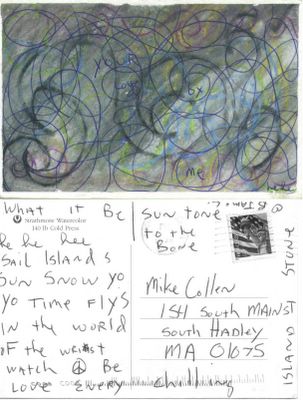 YOUR
BOX
OX
me
What it Be
Strathmore Watercolor
140 lb Cold Press
he he hee
SAIL ISLANDS
SUN SNOW YO
YO TIME FLYS
IN the WORLD
OF the WRIST
WATCH Be
LOVE EVERY
SUN TONE
to the
BONE
Mike Collen
154 South MAIN ST
South Hadley
MA 01075
chilling
STONE